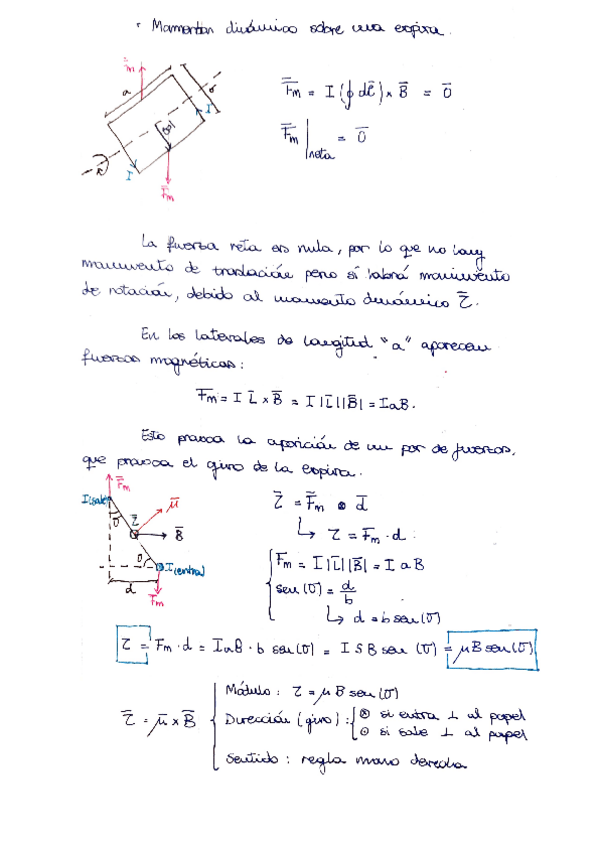 • Momento dinámico sobre una espira.
F̅m a b I 90° I F̅m
F̅m = I (∮ dl̅) × B̅ = 0̅
F̅m |neta = 0̅
La fuerza neta es nula, por lo que no hay
movimiento de traslación pero sí habrá movimiento
de rotación, debido al momento dinámico τ̅.
En los laterales de longitud "a" aparecen
fuerzas magnéticas:
F̅m = I L̅ × B̅ = I |L̅||B̅| = I a B.
Esto provoca la aparición de un par de fuerzas,
que provoca el giro de la espira.
F̅m
I(sale) μ̅
θ τ B̅
θ I(entra)
d
F̅m
τ̅ = F̅m ⊗ d̅
↳ τ = Fm · d
Fm = I |L̅||B̅| = I a B
sen(θ) = d/b
↳ d = b sen(θ)
τ = Fm · d = I a B · b sen(θ) = I S B sen(θ) = μ B sen(θ)
τ̅ = μ̅ × B̅
Módulo: τ = μ B sen(θ)
Dirección (giro): ⊗ si entra ⊥ al papel
⊙ si sale ⊥ al papel
Sentido: regla mano derecha